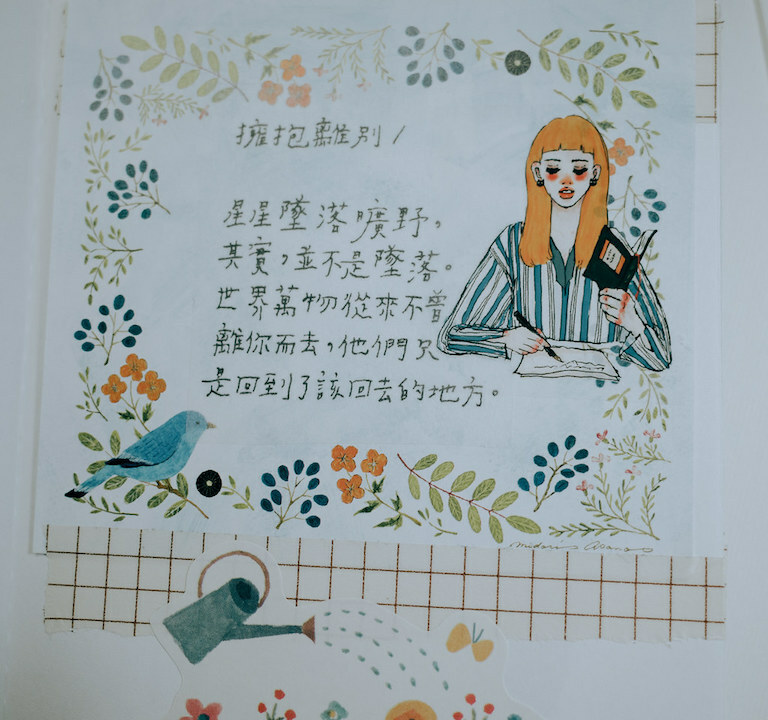 擁抱離別/
星星墜落曠野,
其實,並不是墜落。
世界萬物從來不曾
離你而去,他們只
是回到了該回去的地方。